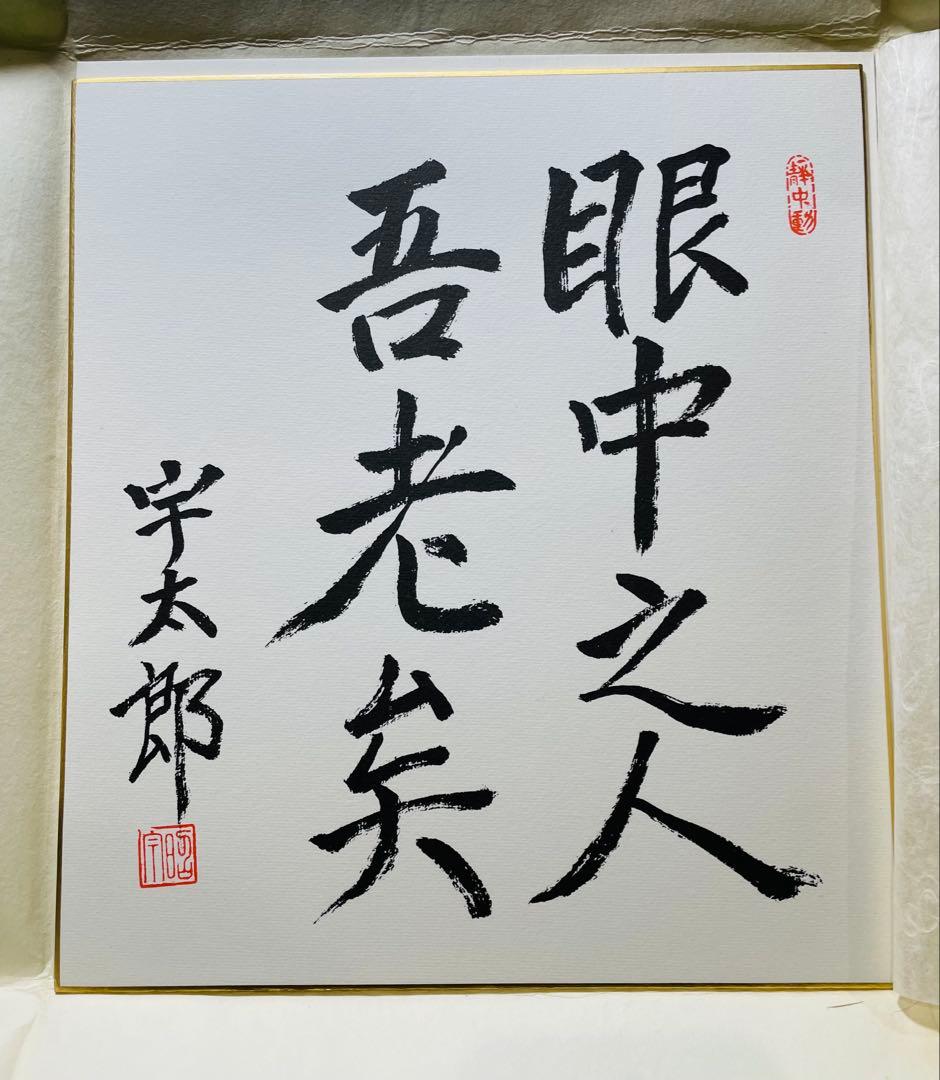 静中動
眼中之人
吾老矣
宇太郎